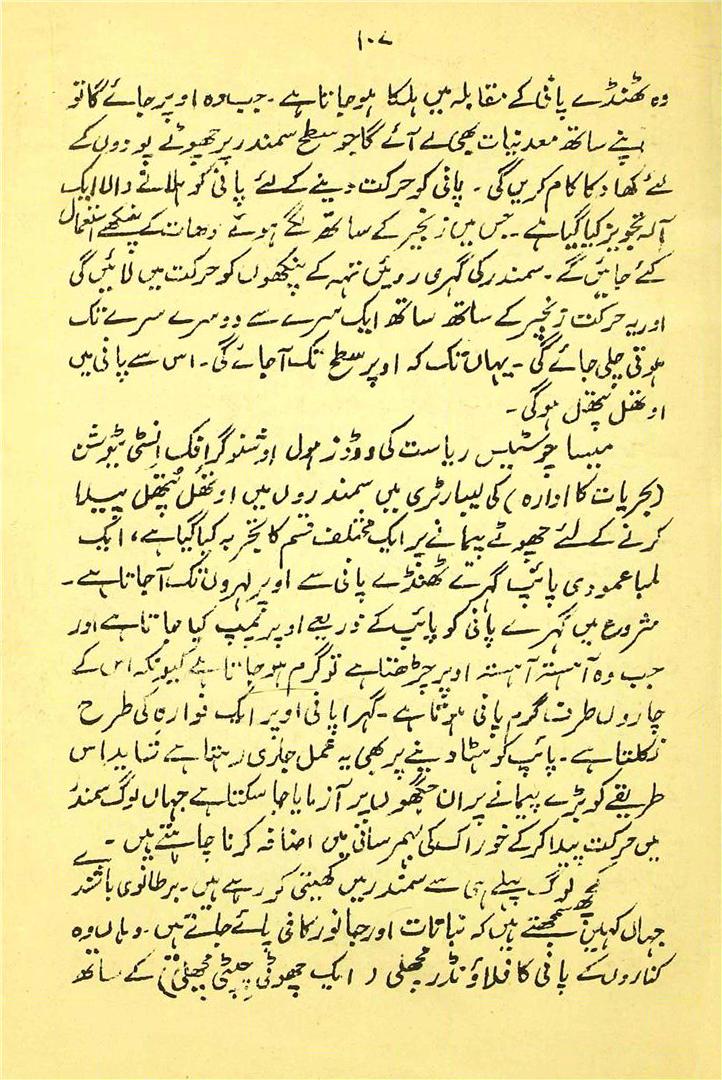 ۱۰۷
وہ ٹھنڈے پانی کے مقابلہ میں ہلکا ہو جاتا ہے ۔ جب وہ اوپر جائے گا تو
اپنے ساتھ معدنیات بھی لے آئے گا جو سطح سمندر پر چھوٹے پودوں کے
لئے کھاد کا کام کریں گی ۔ پانی کو حرکت دینے کے لئے پانی کو ہلانے والا ایک
آلہ تجویز کیا گیا ہے ۔ جس میں زنجیر کے ساتھ لگے ہوئے دھات کے پنکھے استعمال
کئے جائیں گے ۔ سمندر کی گہری رویئں تہہ کے پنکھوں کو حرکت میں لائیں گی
اور یہ حرکت زنجیر کے ساتھ ساتھ ایک سرے سے دوسرے سرے تک
ہوتی چلی جائے گی ۔ یہاں تک کہ اوپر سطح تک آ جائے گی ۔ اس سے پانی میں
اوتھل پتھل ہو گی ۔
میسا چوسٹیس ریاست کی ووڈز ہول اوشنوگرافک انسٹی ٹیوشن
(بحریات کا ادارہ) کی لیبارٹری میں سمندروں میں اوتھل پتھل پیدا
کرنے کے لئے چھوٹے پیمانے پر ایک مختلف قسم کا تجربہ کیا گیا ہے ، ایک
لمبا عمودی پائپ گہرے ٹھنڈے پانی سے اوپر لہروں تک آ جاتا ہے ۔
شروع میں گہرے پانی کو پائپ کے ذریعے اوپر پمپ کیا جاتا ہے اور
جب وہ آہستہ آہستہ اوپر چڑھتا ہے تو گرم ہو جاتا ہے کیونکہ اس کے
چاروں طرف گرم پانی ہوتا ہے ۔ گہرا پانی اوپر ایک فوارہ کی طرح
نکلتا ہے ۔ پائپ کو ہٹا دینے پر بھی یہ عمل جاری رہتا ہے شاید اس
طریقے کو بڑے پیمانے پر ان جگہوں پر آزمایا جا سکتا ہے جہاں لوگ سمندر
میں حرکت پیدا کر کے خوراک کی بہم رسانی میں اضافہ کرنا چاہتے ہیں ۔
کچھ لوگ پہلے ہی سے سمندر میں کھیتی کر رہے ہیں ۔ برطانوی باشندے
جہاں کہیں سمجھتے ہیں کہ نباتات اور جانور کافی پائے جاتے ہیں ۔ وہاں وہ
کناروں کے پانی کا فلاؤنڈر مچھلی (ایک چھوٹی چپٹی مچھلی) کے ساتھ